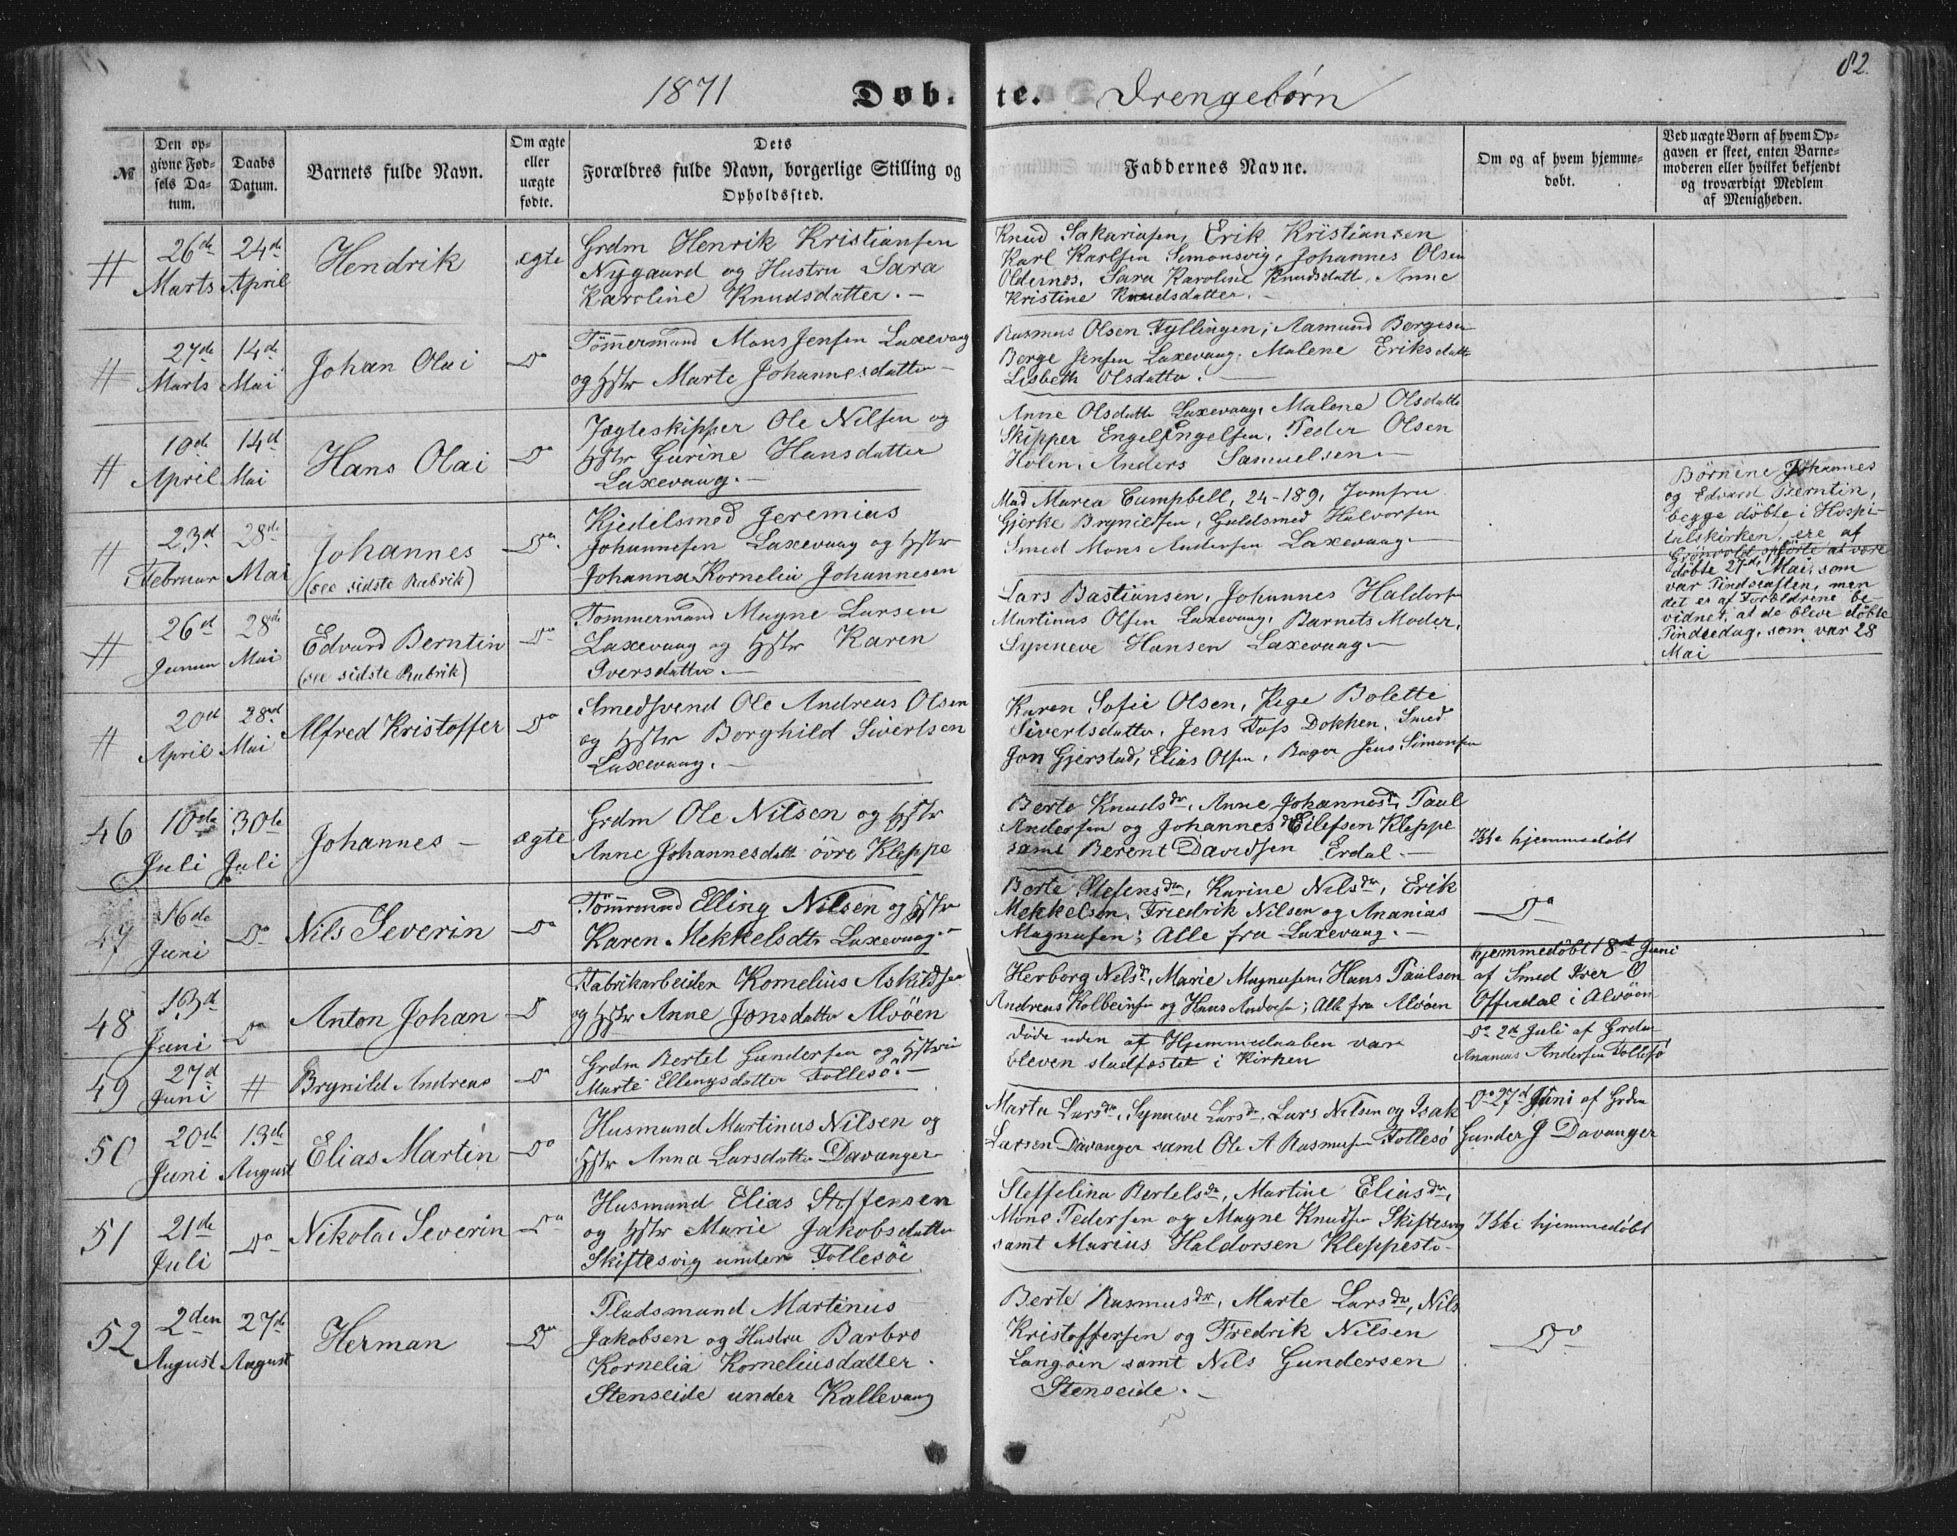 82.
1871 Døbte. Drengebørn
№
Den opgivne Fødsels Datum.
Daabs Datum.
Barnets fulde Navn.
Om ægte eller uægte fødte.
Dets Forældres fulde Navn, borgerlige Stilling og Opholdssted.
Faddernes Navne.
Om og af hvem hjemmedøbt.
Ved uægte Børn af hvem Opgaven er skeet, enten Barnemoderen eller hvilket bekjendt og troværdigt Medlem af Menigheden.
# 26de Marts 24de April Hendrik ægte
Grdm Henrik Kristiansen
Nygaard og Hustru Sara
Karoline Knudsdatter.
Knud Sakariasen, Erik Kristiansen
Karl Karlsen Simonsvig, Johannes Olsen
Oldernes, Sara Karoline Knudsdatt, Anne
Kristine Knudsdatter.
# 27de Marts 14de Mai Johan Olai Do
Tømmermand Mons Jensen Laxevaag
og Hstr Marte Johannesdatter
Rasmus Olsen Fyllingen, Aamund Borgesen
Borge Jensen Laxevaag, Malene Eriksdatt
Lisbeth Olsdatter.
# 10de April 14de Mai Hans Olai Do
Jagteskipper Ole Nilsen og
Hstr Gurine Hansdatter
Laxevaag.
Anne Olsdatte Laxevaag, Malene Olsdatte
Skipper Engel Engelsen, Peder Olsen
Holen, Anders Samuelsen
# 23d Februar 28de Mai Johannes
(see sidste Rubrik) Do
Kjedelsmed Jeremias
Johannesen Laxevaag og Hstr
Johanna Kornelia Johannesen
Mad Marea Campbell, 24-189, Jomfru
Gjerke Brynildsen, Guldsmed Halvorsen
Smed Mons Andersen Laxevaag
Børnene Johannes
og Edvard Berntin,
begge døbte i Hospitalskirken, ere af
Grönvold opförte at være
døbte 27d Mai, som
var Pindseaften, men
det er af Forældrene bevidnet, at de bleve døbte
Pindsedag, som var 28
Mai
# 26d Januar 28de Mai Edvard Berntin
(see sidste Rubrik) Do
Tømmermand Magne Larsen
Laxevaag og Hstr Karen
Iversdatter.
Lars Bastiansen, Johannes Haldors
Martinus Olsen Laxevaag, Barnets Moder,
Synneve Hansen Laxevaag
# 20de April 28de Mai Alfred Kristoffer Do
Smedsvend Ole Andreas Olsen
og Hstr Borghild Sivertsen
Laxevaag.
Karen Sofie Olsen, Pige Bolette
Sivertsdatter, Jens Foss Dokken, Smed
Jon Gjerstad, Elias Olsen, Bager Jens Simonsen
46 10de Juli 30te Juli Johannes ægte
Grdm Ole Nilsen og Hstr
Anne Johannesdatt övre Kleppe
Berte Knudsdr, Anne Johannesdr, Paul
Andersen og Johannes Eilefsen Kleppe
samt Berent Davidsen Erdal.
Ikke hjemmedøbt
47 16de Juni Do Nils Severin Do
Tømrmand Elling Nilsen og Hstr
Karen Mekkelsdtr Laxevaag.
Berte Stefensdr, Karine Nilsdr, Erik
Mekkelsen, Friedrik Nilsen og Ananias
Magnusen; Alle fra Laxevaag.
Do
48 13d Juni Do Anton Johan Do
Fabrikarbeider Kornelius Askildsen
og Hstr Anne Jonsdatter Alvöen
Herborg Nelsdr, Marie Magnusen, Hans Paulsen
Andreas Kolbeinsen og Hans Andersen; Alle fra Alvöen
Hjemmedøbt 18de Juni
af Smed Iver O
Offerdal i Alvöen
49 27d Juni # Brynild Andreas Do
Grdm Bertel Gundersen og Hstr
Marte Ellingsdatter Follesö.
døde uden at Hjemmedaaben var
bleven stadfæstet i Kirken
Do 2d Juli af Grdm
Ananias Andersen Follesö
50 20de Juni 13de August Elias Martin Do
Husmand Martinus Nilsen og
Hstr Anna Larsdatter Davanger
Marta Larsdr, Synneve Larsdr, Lars Nilsen og Isak
Larsen Davanger samt Ole A Rasmusen Follesö
Do 27d Juni af Grdm
Gunder J Davanger
51 21de Juli Do Nikolai Severin Do
Husmand Elias Stoffensen
og Hstr Marie Jakobsdatter
Skiftesvig under Follesöe
Steffelina Bertelsdr, Martine Eliasdr,
Mons Pedersen og Magne Knudsen Skiftesvig
samt Marius Haldorsen Kleppestö
Ikke hjemmedøbt
52 2den August 27de August Herman Do
Pladsmand Martinus
Jakobsen og Hustru Barbro
Kornelia Korneliusdatter.
Stenseide under Kallevaag
Berte Rasmusdr, Marte Larsdr, Nils
Kristoffersen og Fredrik Nilsen
Langöin samt Nils Gundersen
Stenseide.
Do